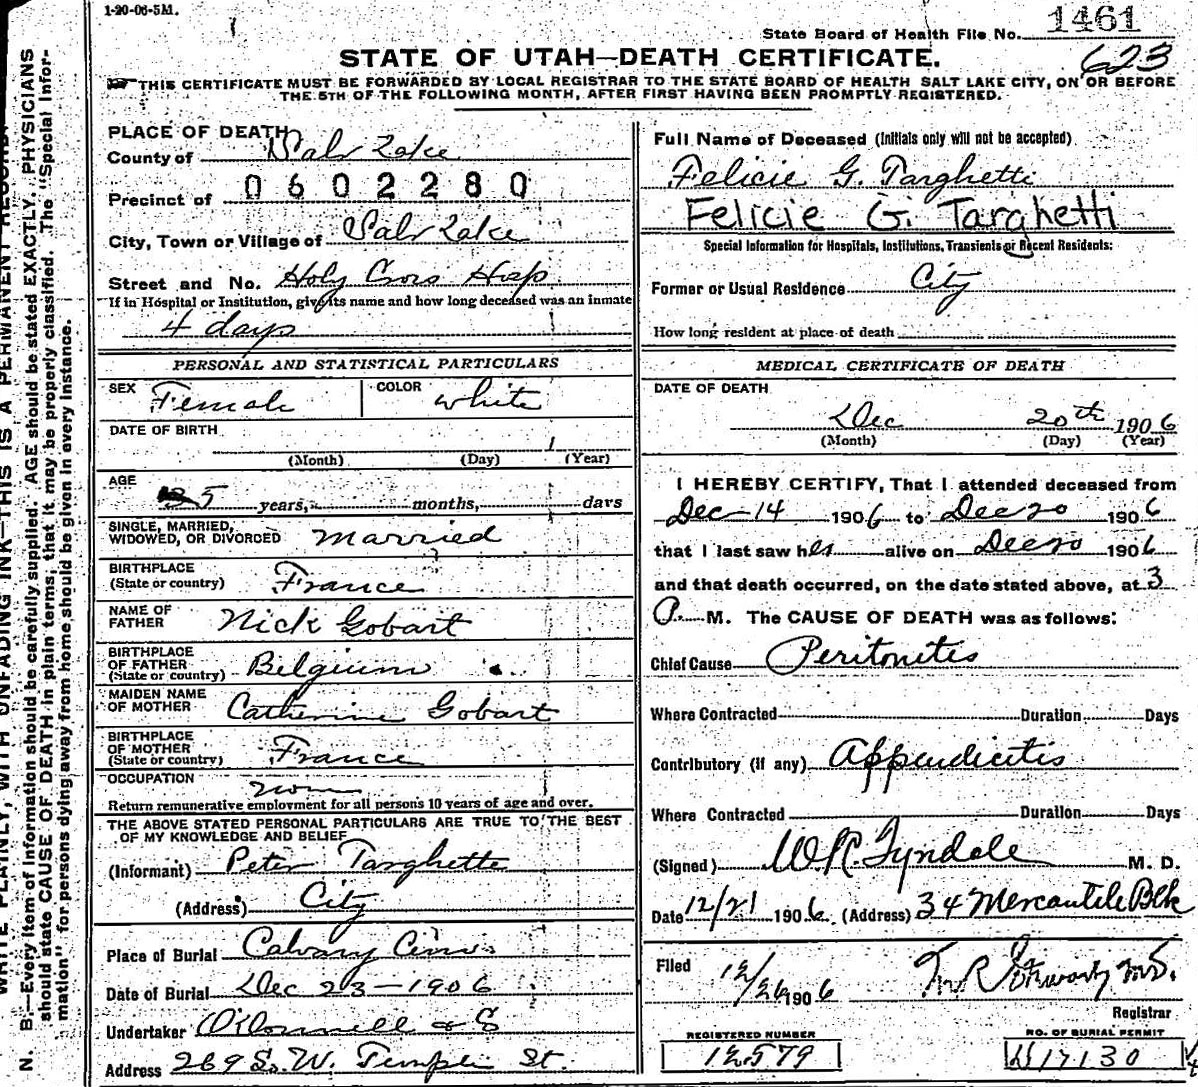 1-20-06-5M.
State Board of Health File No. 1461
623
STATE OF UTAH—DEATH CERTIFICATE.
THIS CERTIFICATE MUST BE FORWARDED BY LOCAL REGISTRAR TO THE STATE BOARD OF HEALTH SALT LAKE CITY, ON OR BEFORE
THE 5TH OF THE FOLLOWING MONTH, AFTER FIRST HAVING BEEN PROMPTLY REGISTERED.
PLACE OF DEATH
County of Salt Lake
Precinct of 0602280
City, Town or Village of Salt Lake
Street and No. Holy Cross Hosp
If in Hospital or Institution, give its name and how long deceased was an inmate
4 days
PERSONAL AND STATISTICAL PARTICULARS
SEX Female COLOR White
DATE OF BIRTH
(Month) (Day) (Year)
AGE 35 years, months, days
SINGLE, MARRIED,
WIDOWED, OR DIVORCED Married
BIRTHPLACE
(State or country) France
NAME OF
FATHER Nick Gobart
BIRTHPLACE
OF FATHER
(State or country) Belgium
MAIDEN NAME
OF MOTHER Catherine Gobart
BIRTHPLACE
OF MOTHER
(State or country) France
OCCUPATION
Return remunerative employment for all persons 10 years of age and over.
THE ABOVE STATED PERSONAL PARTICULARS ARE TRUE TO THE BEST
OF MY KNOWLEDGE AND BELIEF
(Informant) Peter Targhette
(Address) City
Place of Burial Calvary
Date of Burial Dec 23-1906
Undertaker O'Donnell &
Address 269 S. W. Temple St.
Full Name of Deceased (Initials only will not be accepted)
Felicie G. Targhetti
Felicie G. Targhetti
Special Information for Hospitals, Institutions, Transients or Recent Residents:
Former or Usual Residence City
How long resident at place of death
MEDICAL CERTIFICATE OF DEATH
DATE OF DEATH
Dec 20th 1906
(Month) (Day) (Year)
I HEREBY CERTIFY, That I attended deceased from
Dec-14 1906 to Dec 20 1906
that I last saw her alive on Dec 20 1906
and that death occurred, on the date stated above, at 3
P. M. The CAUSE OF DEATH was as follows:
Chief Cause Peritonitis
Where Contracted Duration Days
Contributory (if any) Appendicitis
Where Contracted Duration Days
(Signed) W.R. Tyndale M. D.
Date 12/21 1906 (Address) 34 Mercantile Blk
Filed 12/26 1906
Registrar
REGISTERED NUMBER
12579
NO. OF BURIAL PERMIT
17130
N. B.—Every item of information should be carefully supplied. AGE should be stated EXACTLY. PHYSICIANS
should state CAUSE OF DEATH in plain terms, that it may be properly classified. The "Special Infor-
mation" for persons dying away from home should be given in every instance.
WRITE PLAINLY, WITH UNFADING INK—THIS IS A PERMANENT RECORD.